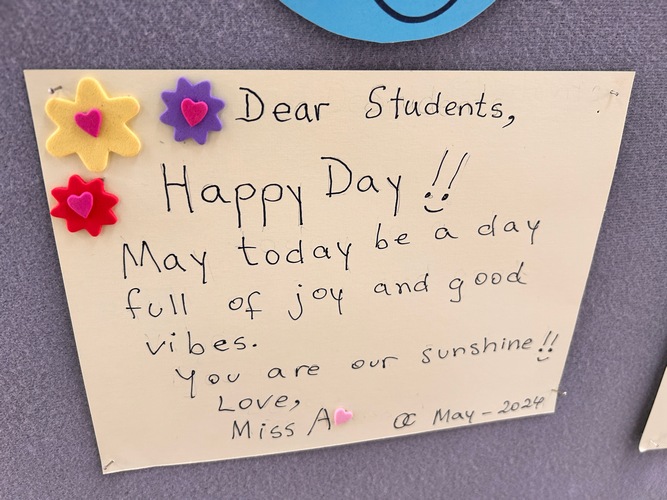 Dear Students,
Happy Day !!
May today be a day
full of joy and good
vibes.
You are our sunshine!!
Love,
Miss A
May - 2024